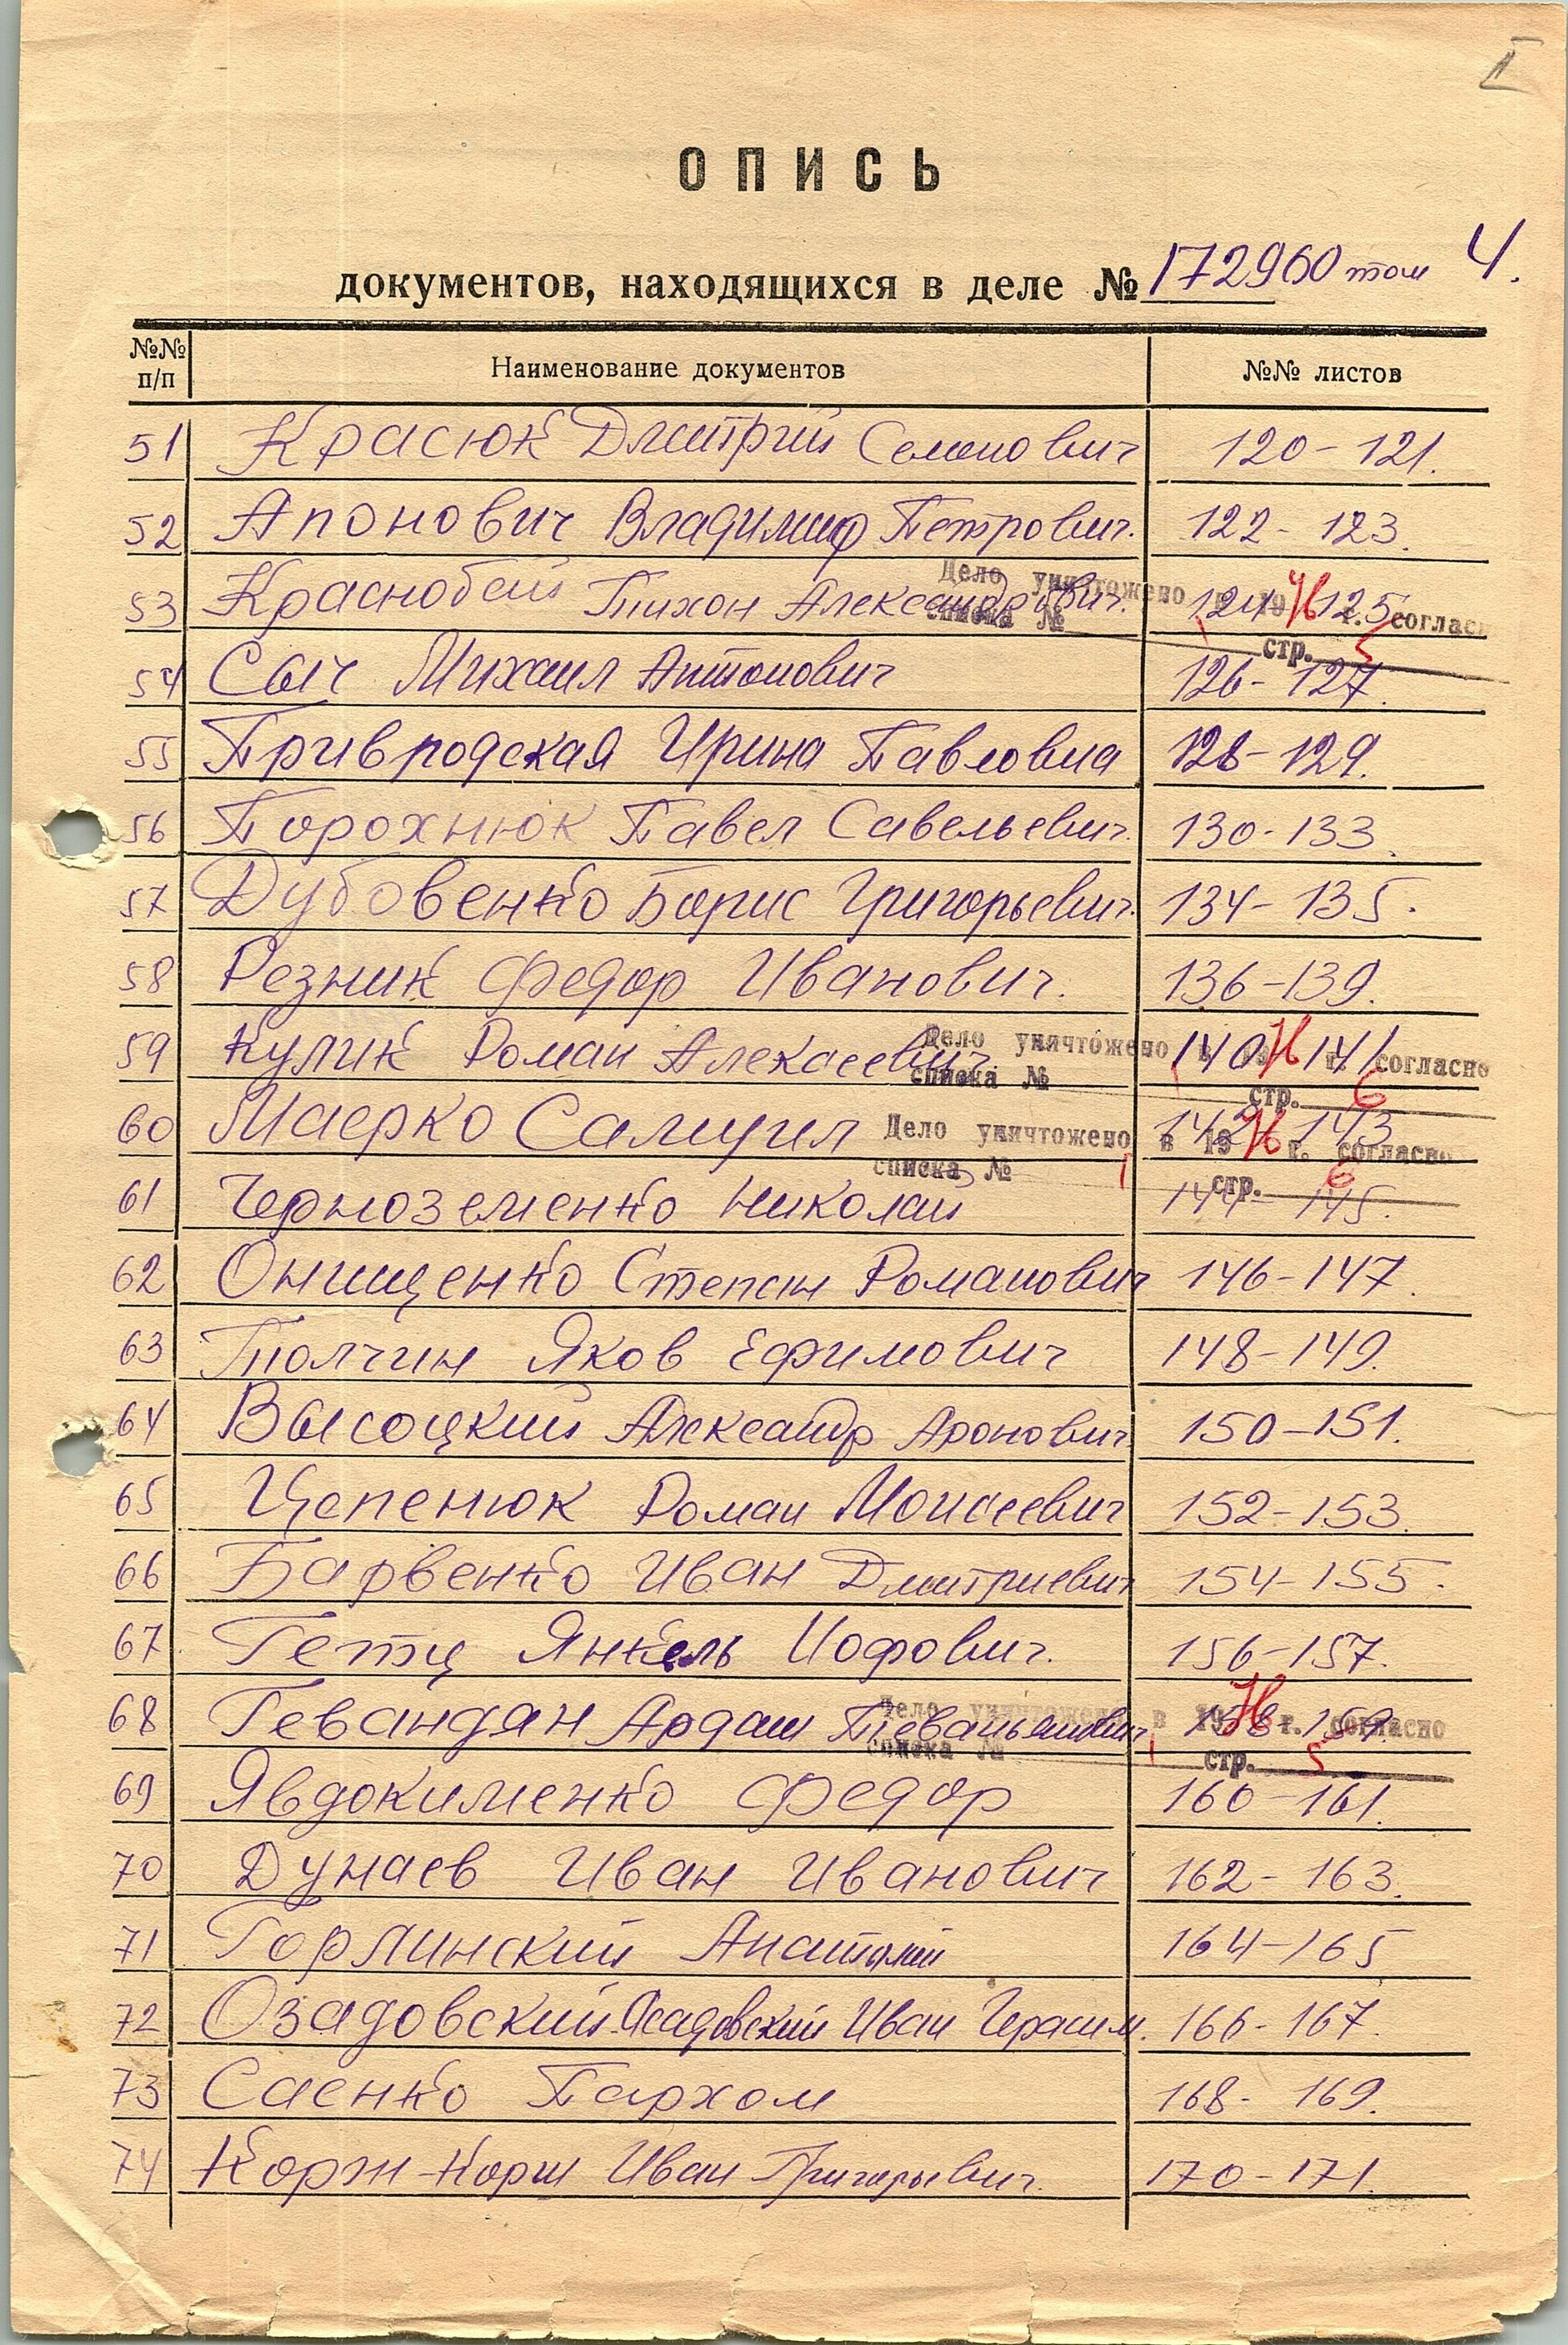 ОПИСЬ
документов, находящихся в деле № 172960 том 4.
№№ п/п Наименование документов №№ листов
51 Красюк Дмитрий Семенович 120-121.
52 Апонович Владимир Петрович. 122-123.
53 Краснобай Тихон Александрович. 124-125
Дело уничтожено в 19 г. согласно
списка № 1 стр. 5
54 Сыч Михаил Антонович 126-127.
55 Павловна 128-129.
56 Порохнюк Павел Савельевич. 130-133.
57 Дубовенко Борис Григорьевич. 134-135.
58 Резник Федор Иванович. 136-139.
59 Кулик Роман Алексеевич 140-141
Дело уничтожено в 19 г. согласно
списка № 1 стр. 6
60 Маерко Самуил 142-143
Дело уничтожено в 19 г. согласно
списка № 1 стр. 6
61 Черноземенко Николай 144-145.
62 Онищенко Степан Романович 146-147.
63 Толчин Яков Ефимович 148-149.
64 Высоцкий Александр Аронович 150-151.
65 Цепенюк Роман Моисеевич 152-153.
66 Барвенко Иван Дмитриевич 154-155.
67 Гетц Янкель Иофович. 156-157.
68 Гевандян Ардаш 158-159.
Дело уничтожено в 19 г. согласно
списка № 1 стр. 5
69 Явдокименко Федор 160-161.
70 Дунаев Иван Иванович 162-163.
71 Горлинский Анатолий 164-165
72 Озадовский-Асадовский Иван Герасим. 166-167.
73 Саенко Пархом 168-169.
74 Корж-Корш Иван Григорьевич. 170-171.